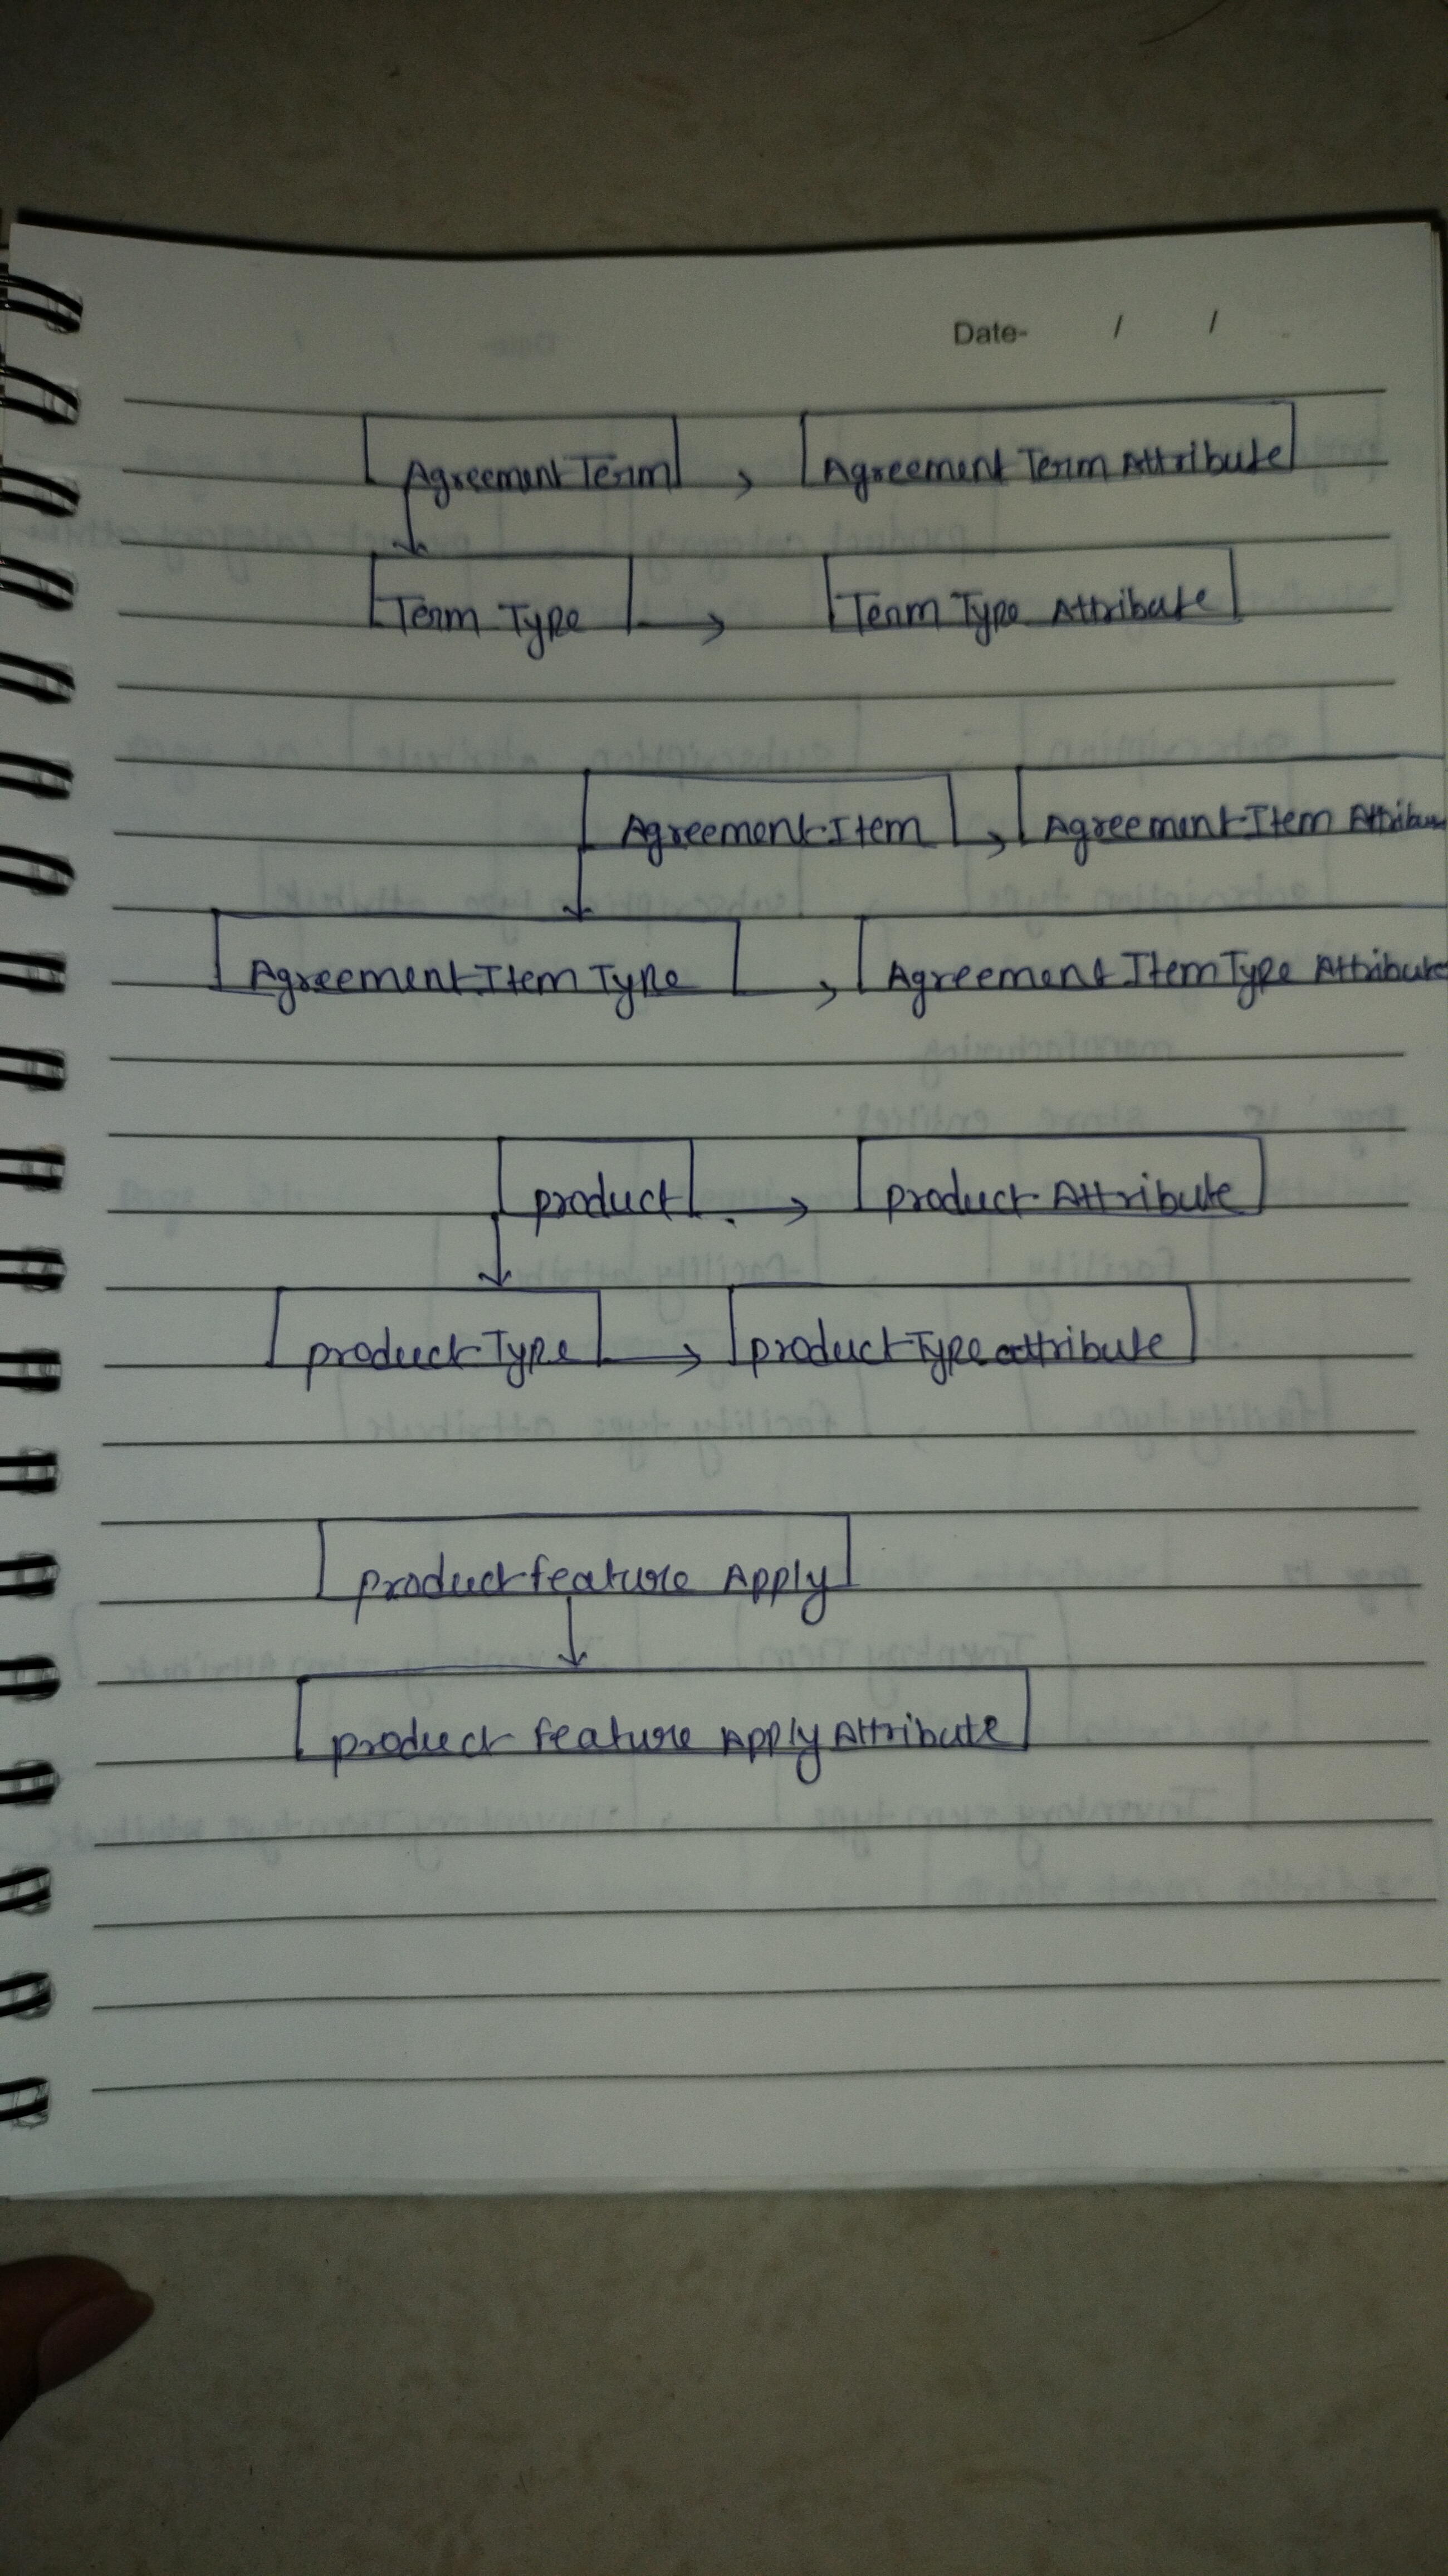 Date- / /
Agreement Term > Agreement Term Attribute
Term Type → Term Type Attribute
Agreement Item → Agreement Item Attribu
Agreement Item Type → Agreement Item Type Attribute
product → product Attribute
product Type → product Type attribute
product feature Apply
product feature Apply Attribute